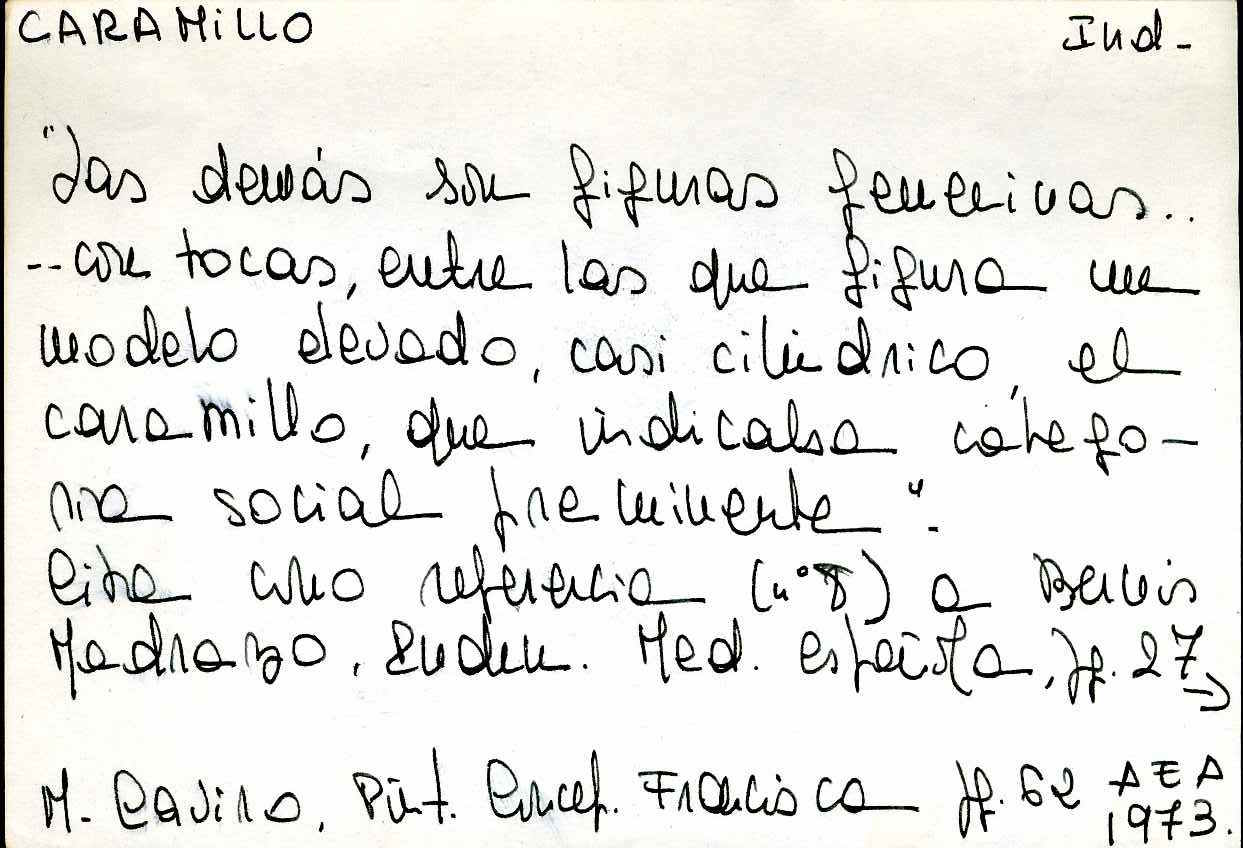 CARAMILLO Ind-
"Las demás son figuras femeninas..
--con tocas, entre las que figura un
modelo elevado, casi cilíndrico, el
caramillo, que indicaba catego-
ria social preminente".
Cita como referencia (nº 8) a Bernis
Madrazo, Indum. Med. española, pg. 27
→
M. Caviro, Pint. Concep. Francisca pg. 62 AEA
1973.